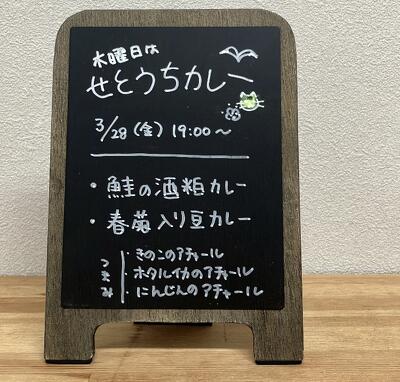 木曜日は
せとうちカレー
3/28 (金) 19:00〜
・鮭の酒粕カレー
・春菊入り豆カレー
つまみ
・きのこのアチャール
・ホタルイカのアチャール
・にんじんのアチャール